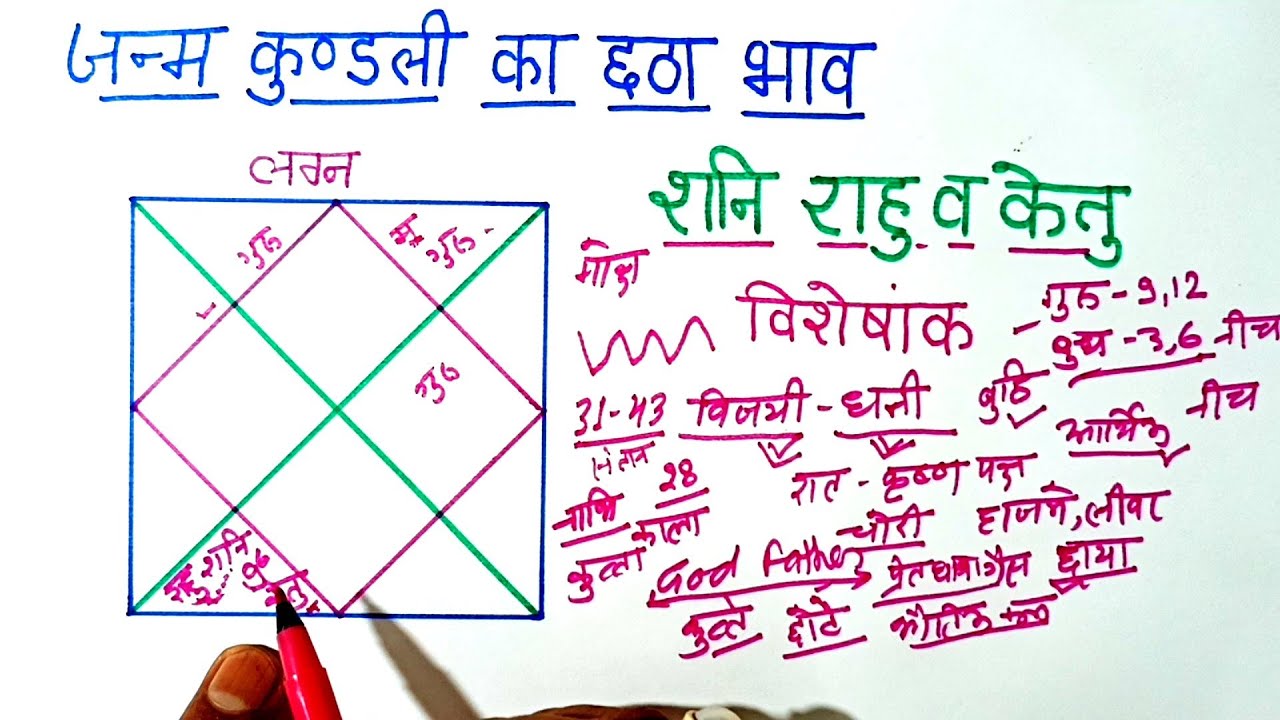 जन्म कुण्डली का छठा भाव
लग्न
शनि राहु व केतु
गुरु
मं. गुरु
मोक्ष
विशेषांक
गुरु - 9,12
बुध - 3,6 नीच
गुरु
31-43 विजयी - धनी
बुद्धि
आर्थिक नीच
संतान
28
रात - कृष्ण पक्ष
नाभि
काला
चोरी
हाजमे, लीवर
कुत्ता
God Father
छाया
कुत्ते छोटे
शनि